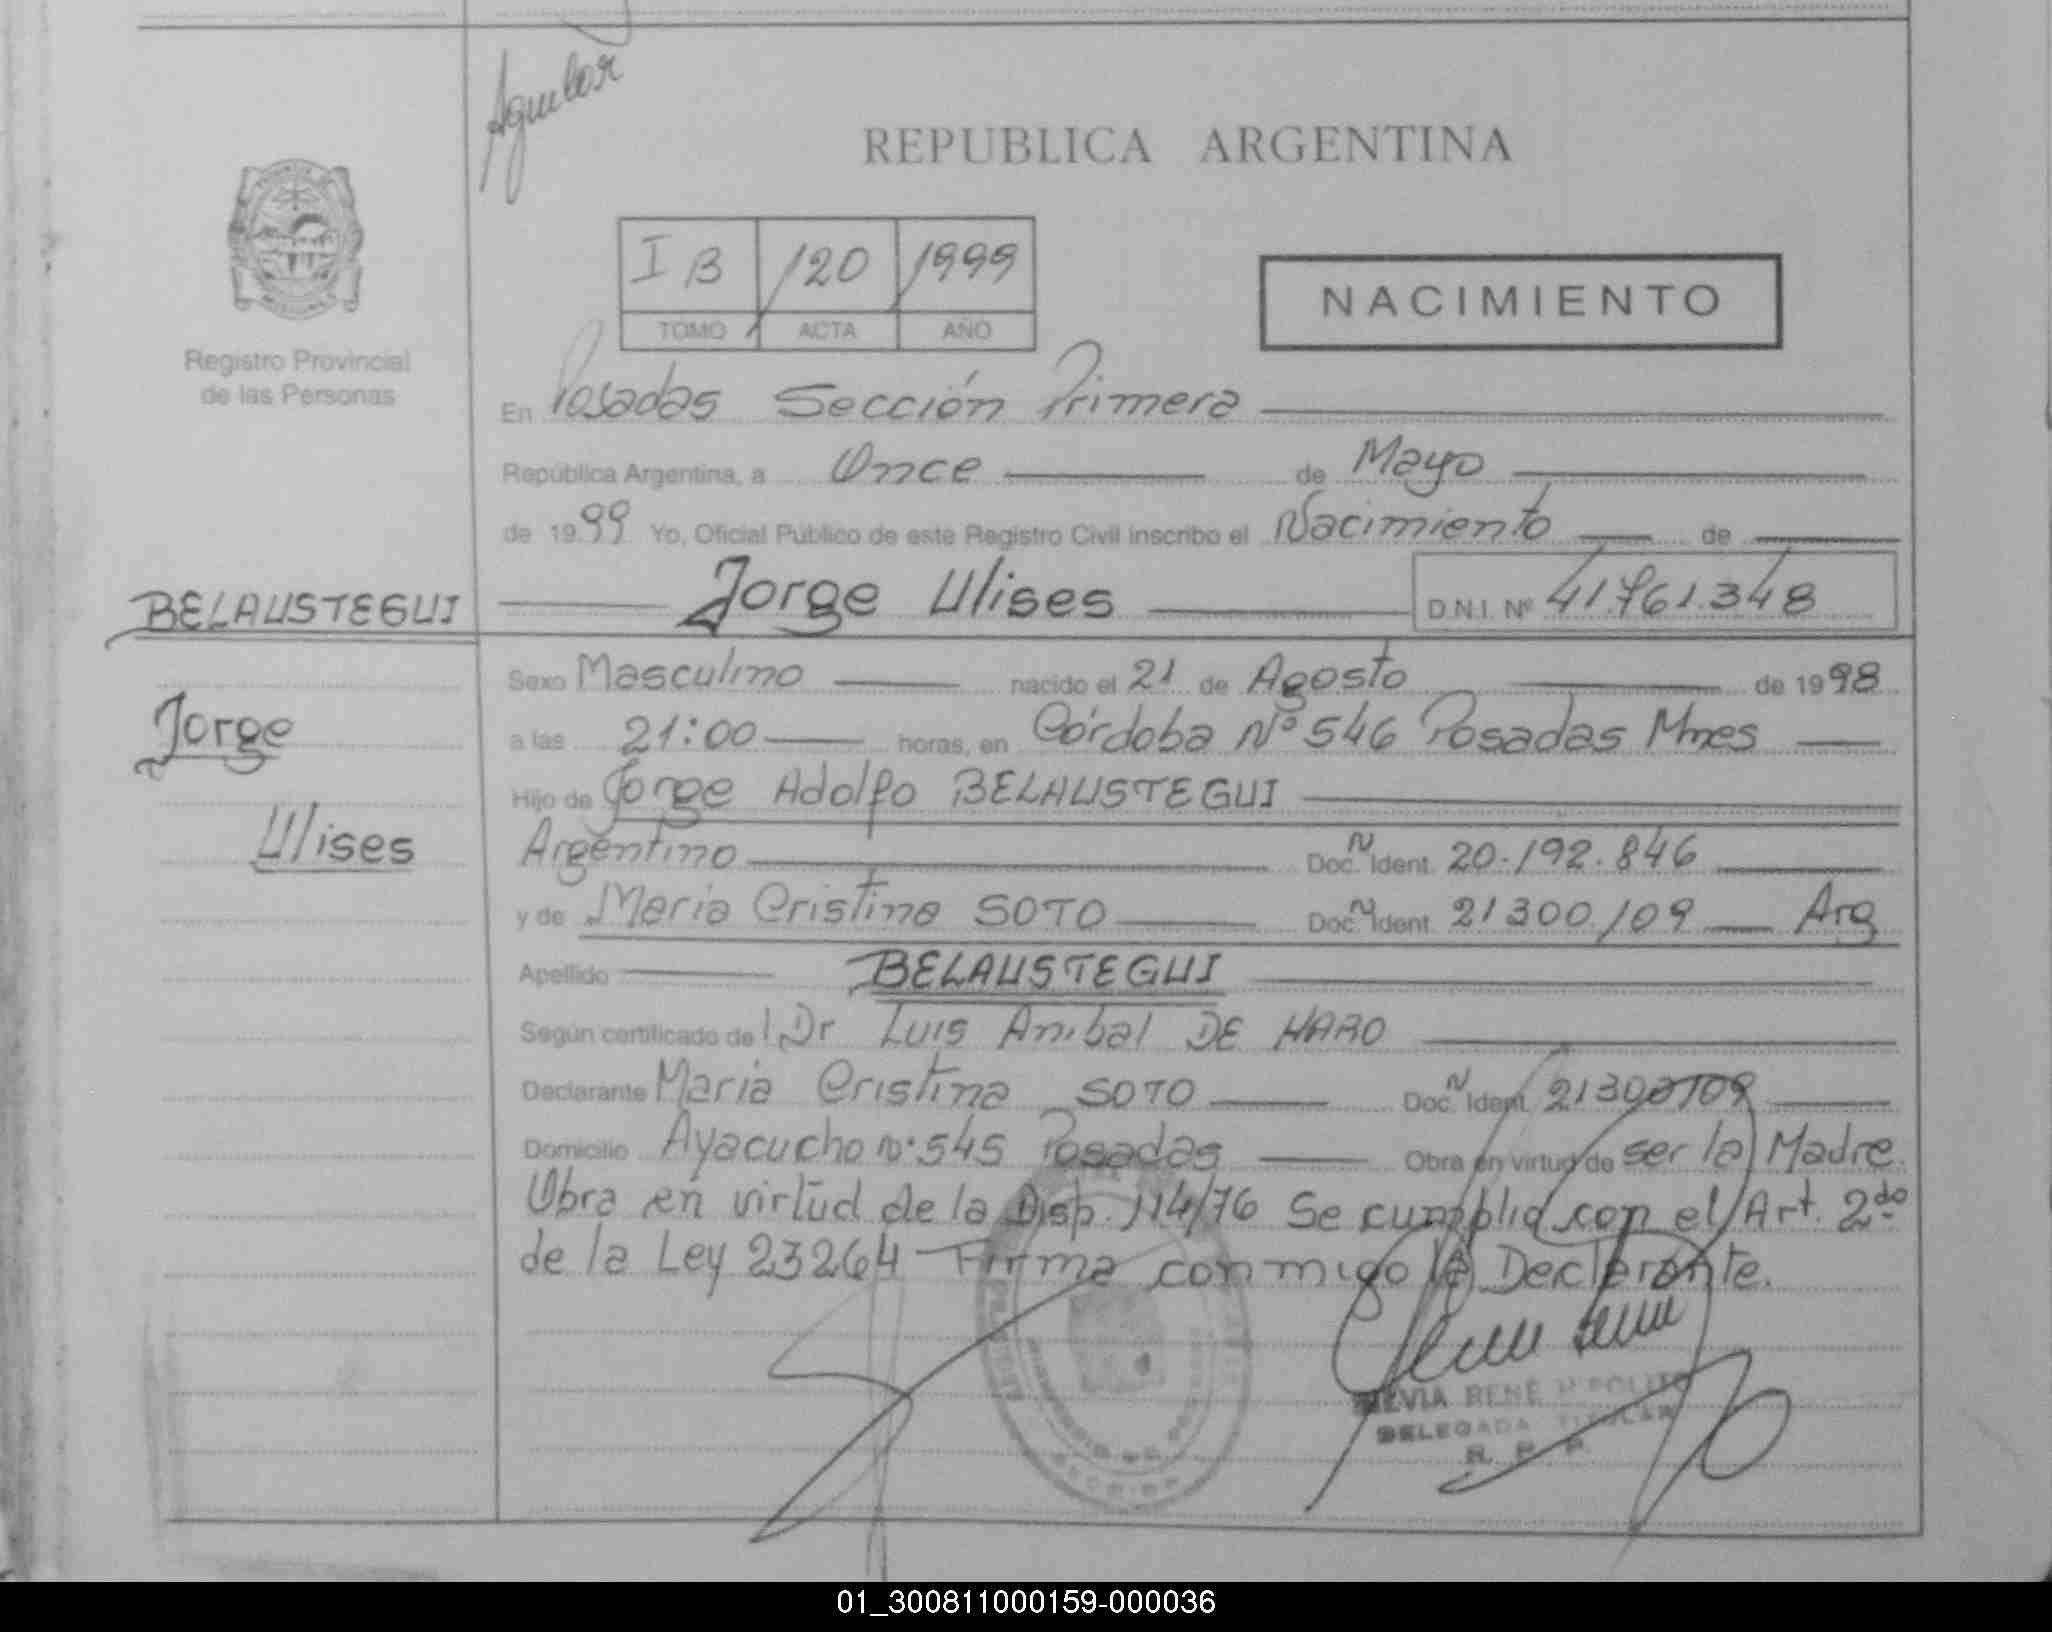 Aguilar
REPUBLICA ARGENTINA
I B 120 1999
TOMO ACTA AÑO
NACIMIENTO
Registro Provincial
de las Personas
En Posadas Sección Primera
República Argentina, a Once de Mayo
de 1999 Yo, Oficial Público de este Registro Civil inscribo el Nacimiento de
BELAUSTEGUI
Jorge Ulises D.N.I. Nº 41.761.348
Jorge
Ulises
Sexo Masculino nacido el 21 de Agosto de 1998
a las 21:00 horas, en Córdoba Nº 546 Posadas Mnes
Hijo de Jorge Adolfo BELAUSTEGUI
Argentino Doc. N Ident. 20.192.846
y de Maria Cristina SOTO Doc. N Ident. 21300109 Arg
Apellido BELAUSTEGUI
Según certificado de l Dr Luis Anibal DE HARO
Declarante Maria Cristina SOTO Doc. N Ident. 21300109
Domicilio Ayacucho Nº 545 Posadas Obra en virtud de ser la Madre
Obra en virtud de la Disp. 114/76 Se cumplio con el Art. 2do
de la Ley 23264 Firma conmigo la Declarante.
SILVIA RENÉ HIPOLITO
DELEGADA TITULAR
R. P. P.
01_300811000159-000036